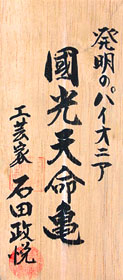 発明のパイオニア
國光天命亀
工芸家 石田政悦